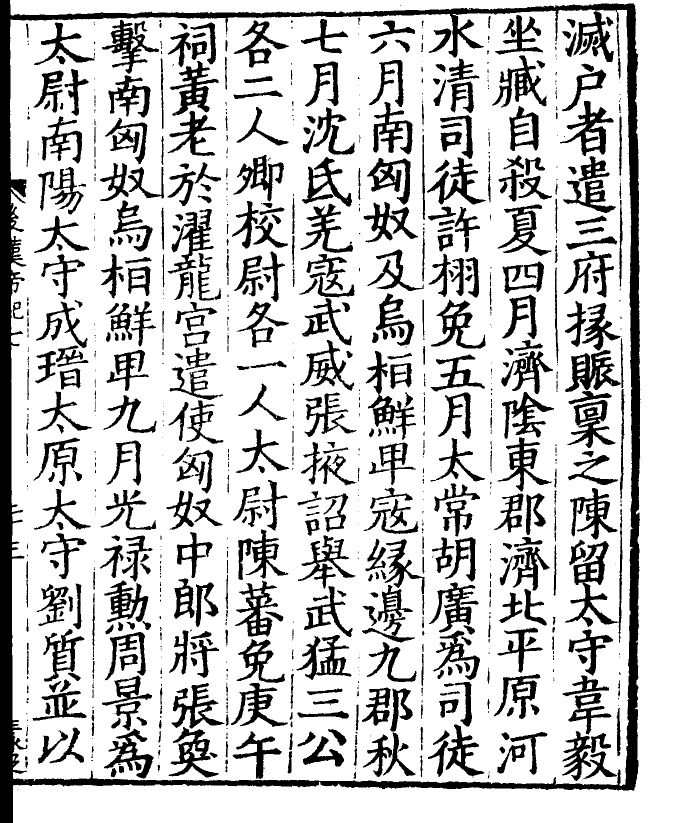 滅户者遣三府掾賑稟之陳留太守韋毅
坐臧自殺夏四月濟陰東郡濟北平原河
水清司徒許栩免五月太常胡廣爲司徒
六月南匈奴及烏桓鮮卑寇緣邊九郡秋
七月沈氐羌寇武威張掖詔舉武猛三公
各二人卿校尉各一人太尉陳蕃免庚午
祠黃老於濯龍宮遣使匈奴中郎將張奐
擊南匈奴烏桓鮮卑九月光祿勳周景爲
太尉南陽太守成瑨太原太守劉質並以
後漢帝紀七